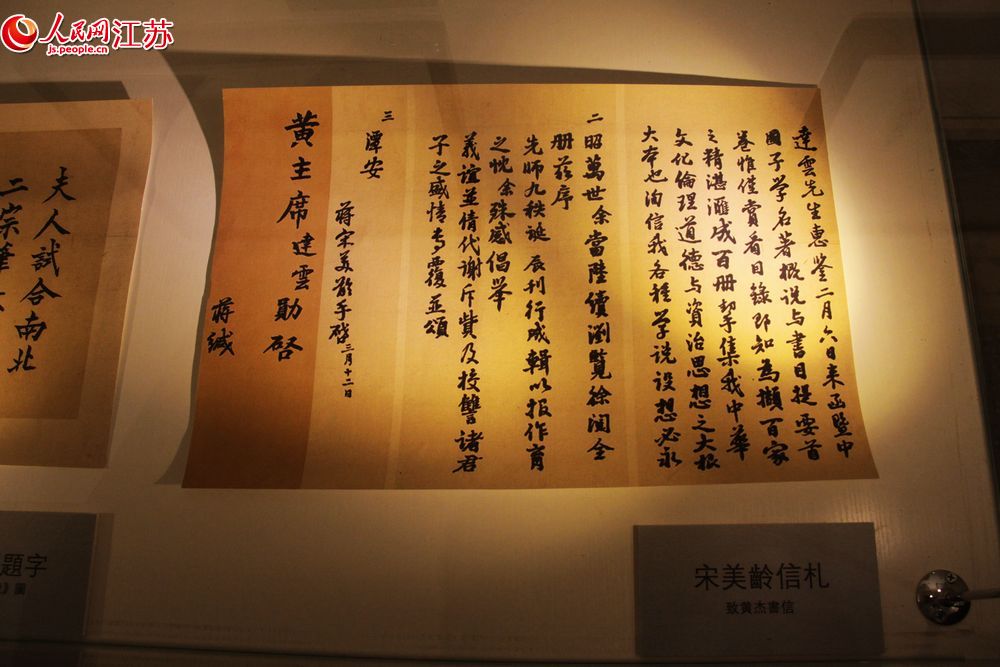 人民网 江苏
js.people.cn
達雲先生惠鑒二月六日来函暨中
國子学名著概说与書目提要首
卷惟僅賞看目錄即知為擷百家
之精湛滙成百册都集我中華
文化倫理道德与資治思想之大根
大本也洵信我各種学说设想必永
二
昭萬世余當陸續瀏覽徐閱全
册茲序
先師九秩誕辰刊行成輯以报作育
之忱余殊感倡举
義誼並倩代謝斥貲及校讐諸君
子之盛情专覆並頌
三
潭安
蒋宋美齡手啓三月十二日
黄主席達雲勛啓
蒋缄
夫人試合南北
二宗筆
題字
圖
宋美齡信札
致黄杰書信